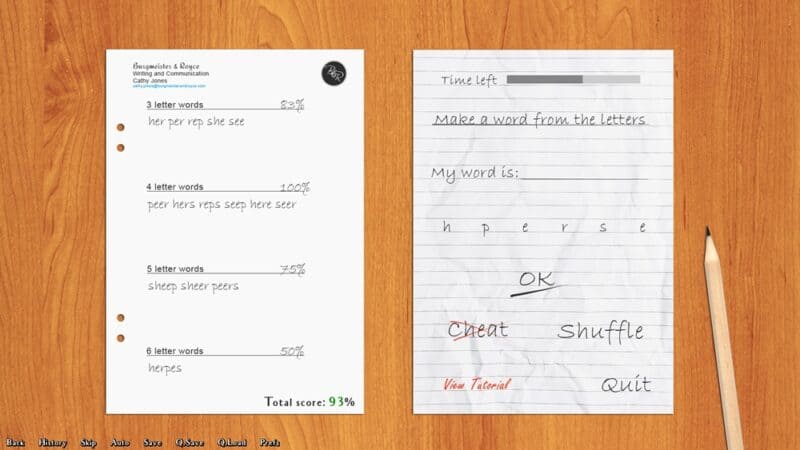 Burgmeister & Royce
Writing and Communication
Cathy Jones
B&R
3 letter words 83%
her per rep she see
4 letter words 100%
peer hers reps seep here seer
5 letter words 75%
sheep sheer peers
6 letter words 50%
herpes
Total score: 93%
Time left
Make a word from the letters
My word is:
h p e r s e
OK
Cheat Shuffle
View Tutorial Quit
Back History Skip Auto Save Q.Save Q.Load Prefs